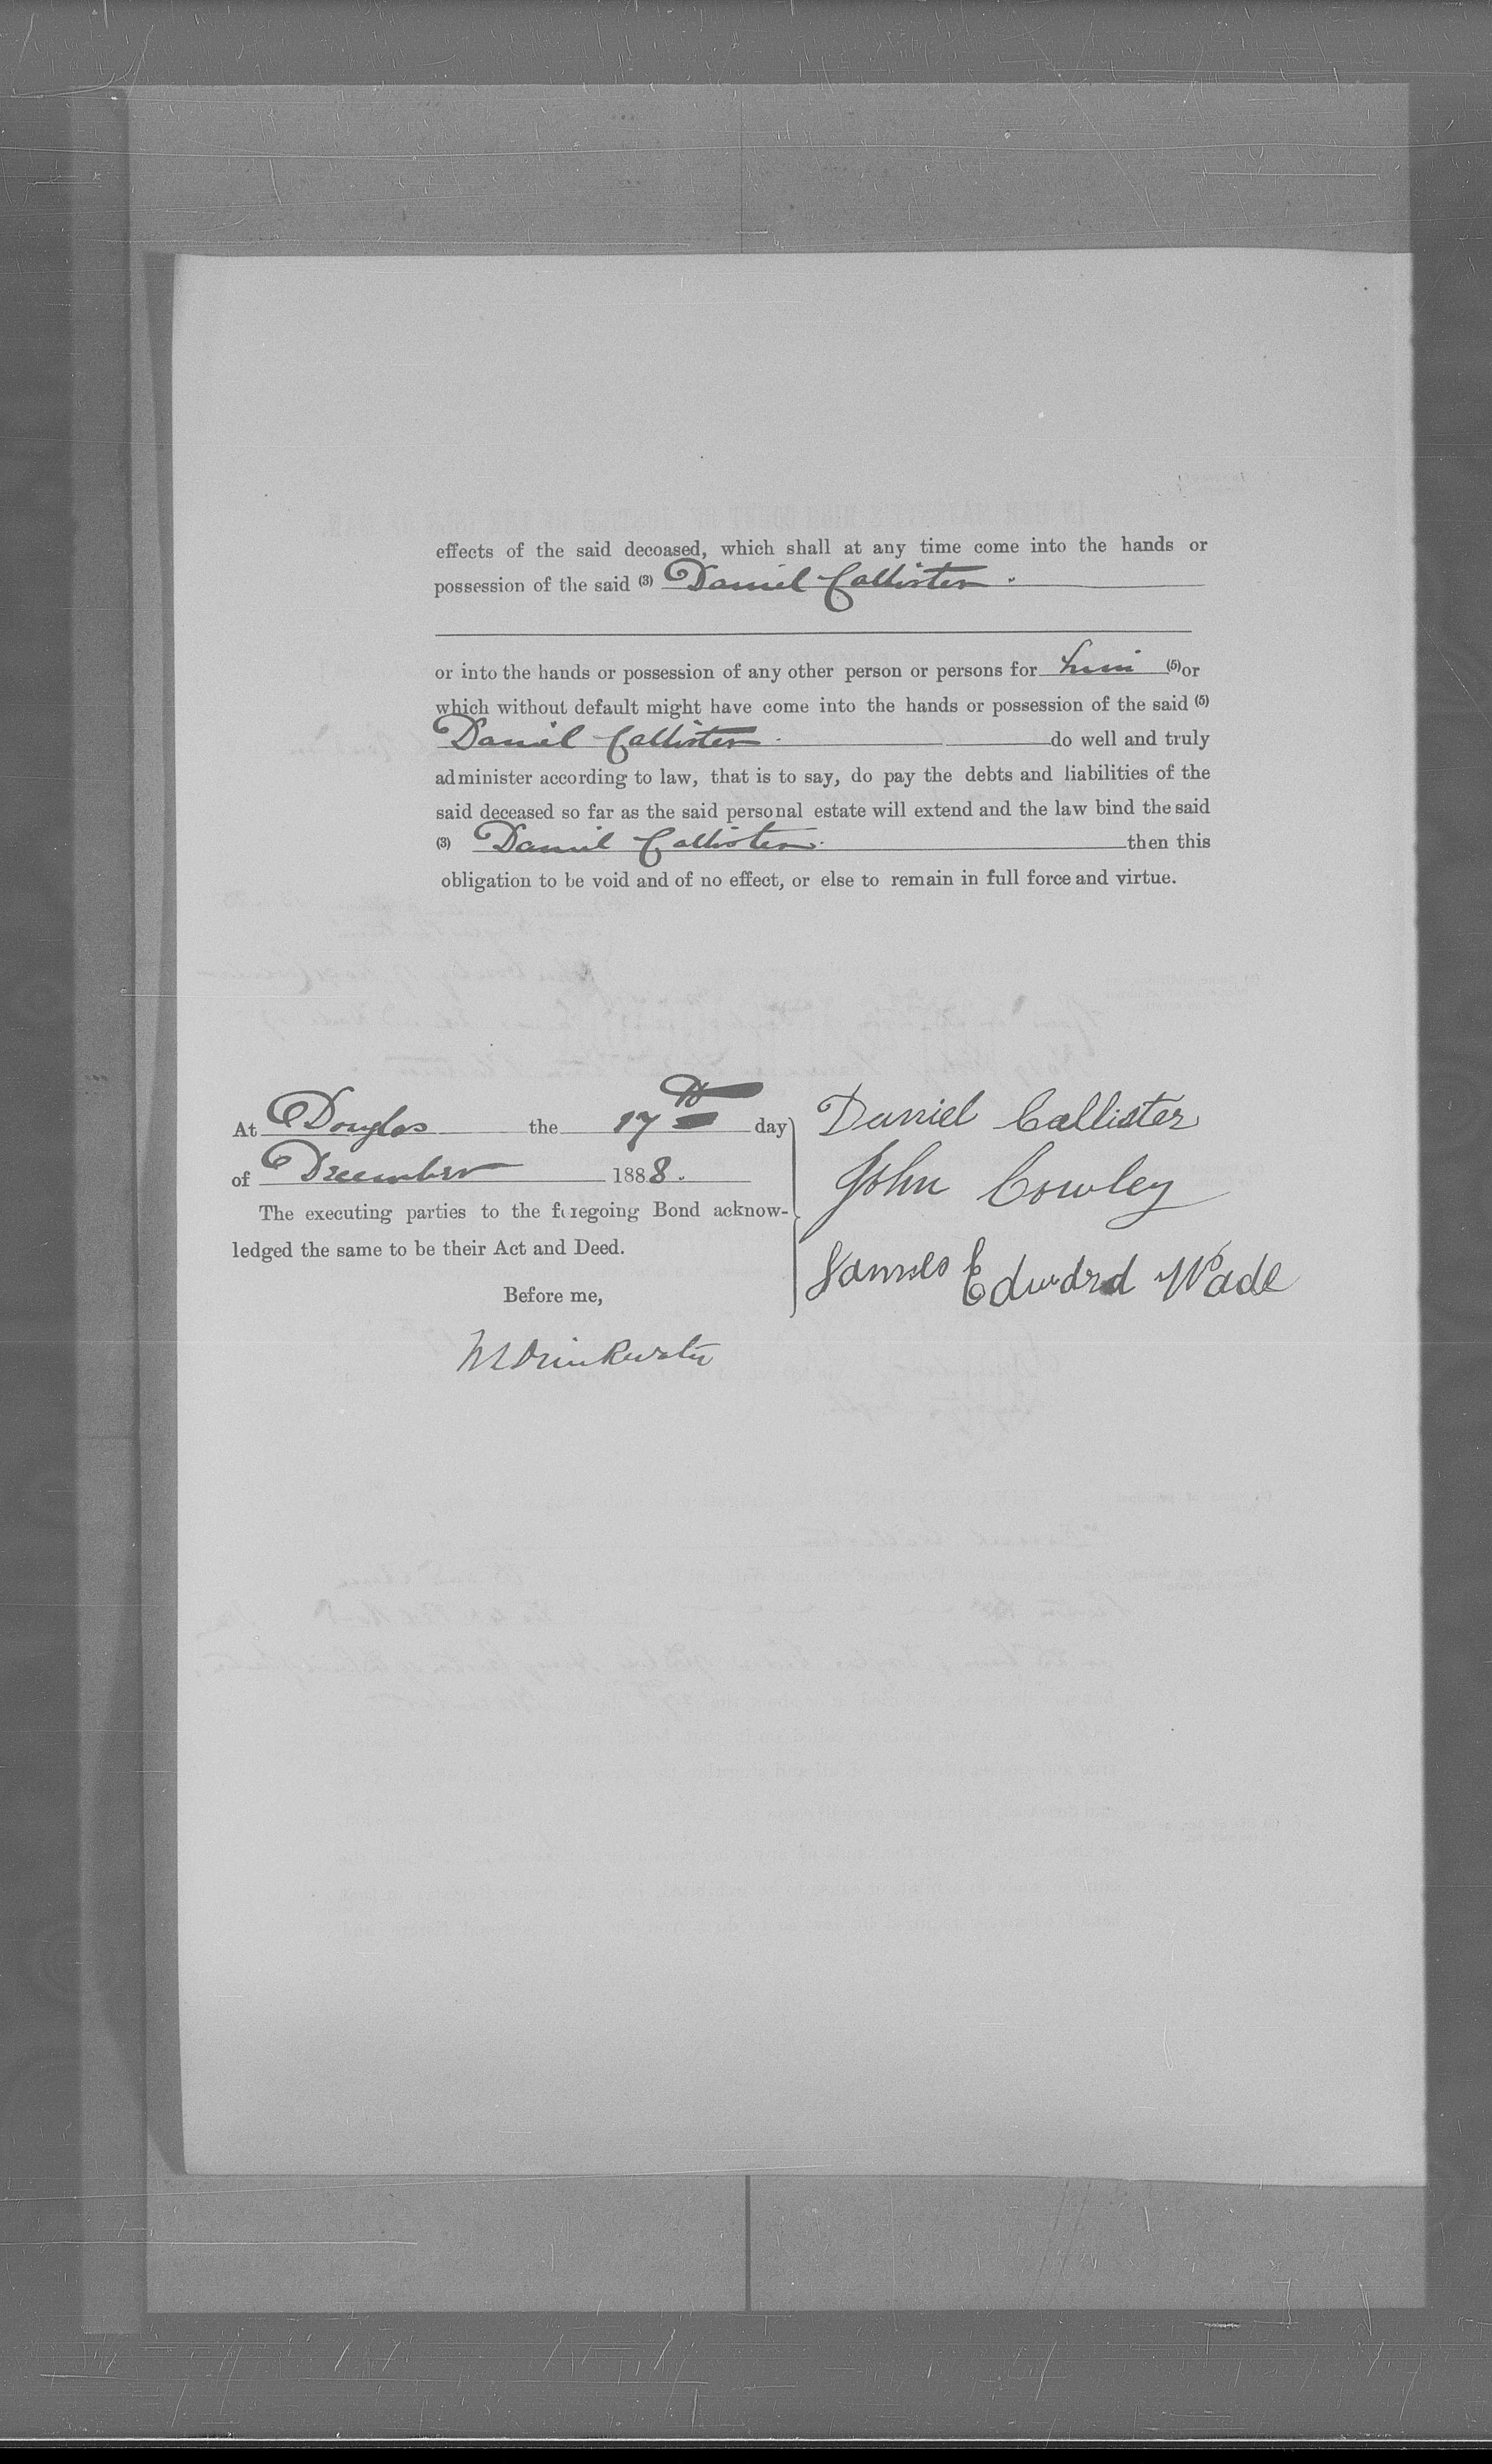 effects of the said decoased, which shall at any time come into the hands or
possession of the said (3) Daniel Callister.
or into the hands or possession of any other person or persons for him (5) or
which without default might have come into the hands or possession of the said (5)
Daniel Callister. do well and truly
administer according to law, that is to say, do pay the debts and liabilities of the
said deceased so far as the said personal estate will extend and the law bind the said
(3) Daniel Callister. then this
obligation to be void and of no effect, or else to remain in full force and virtue.
At Douglas the 17th day
of December 1888.
The executing parties to the foregoing Bond acknow-
ledged the same to be their Act and Deed.
Before me,
Drinkwater
Daniel Callister
John Cowley
James Edward Wade